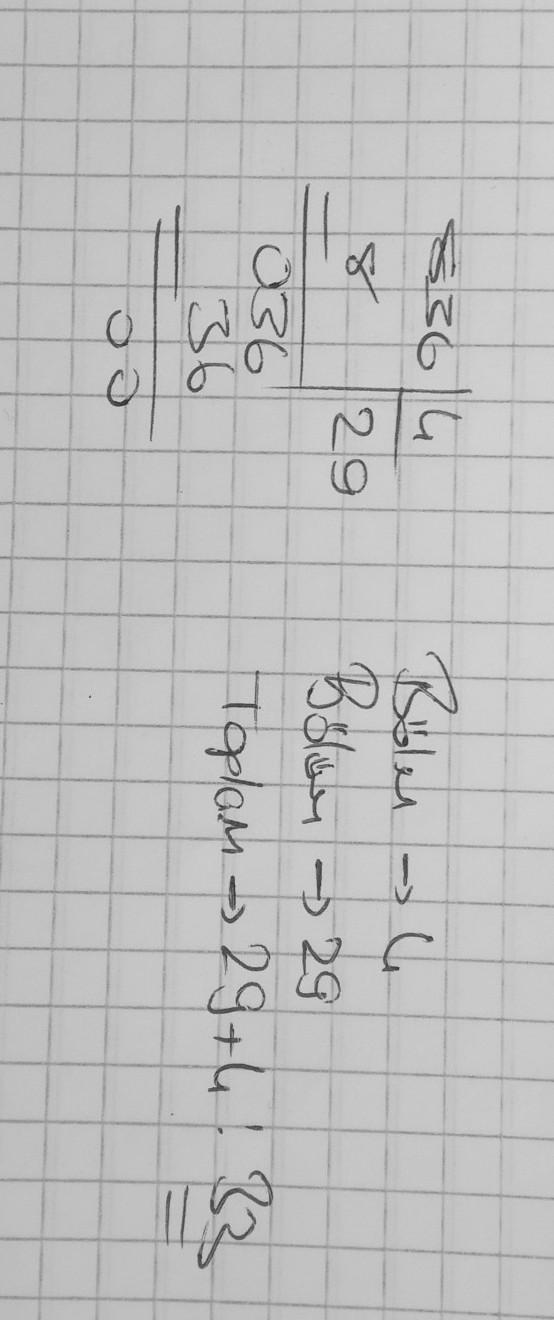 836 4
8 29
036
36
00
Bölen → 4
Bölüm → 29
Toplam → 29+4 : 33